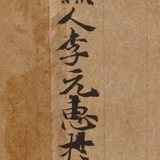 人李元惠